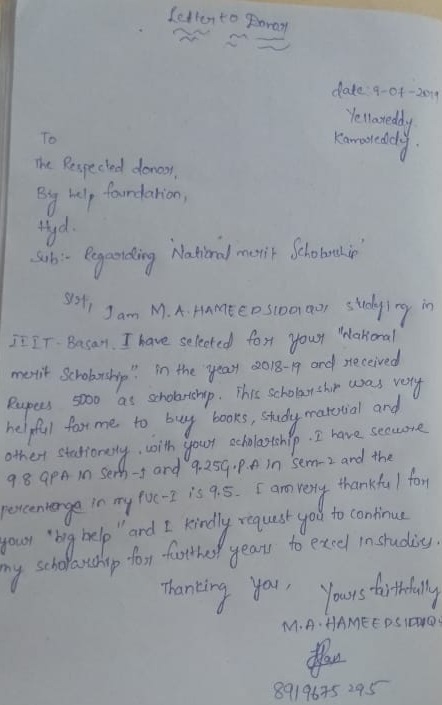 Letter to Donor
date: 9-07-2019
Yellareddy.
Kamareddy.
To
The Respected donor,
Big help foundation,
Hyd.
Sub:- Regarding 'National merit Scholarship'
Sir, I am M.A.HAMEED SIDDIQUI studying in
IIIT-Basar. I have selected for your "National
merit Scholarship". in the year 2018-19 and received
Rupees 5000 as scholarship. This scholarship was very
helpful for me to buy books, study material and
other stationery. with your scholarship. I have secure
9.8 GPA in Sem-1 and 9.25G.P.A in Sem-2 and the
percentange in my PUC-I is 9.5. I am very thankful for
your "big help" and I kindly request you to continue
my scholarship for further years to excel in studies.
Thanking you,
Yours faithfully
M.A.HAMEED SIDDIQUI
8919675295